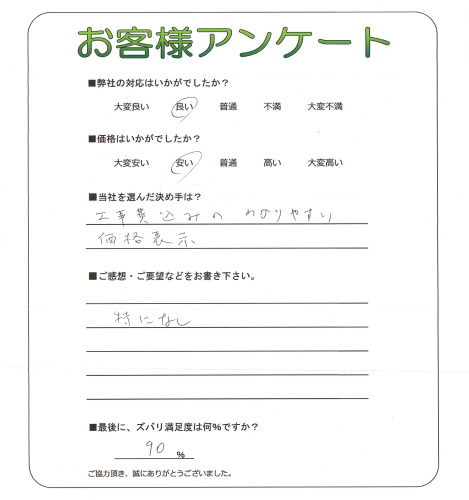 お客様アンケート
■弊社の対応はいかがでしたか？
大変良い 良い 普通 不満 大変不満
■価格はいかがでしたか？
大変安い 安い 普通 高い 大変高い
■当社を選んだ決め手は？
工事費込みの わかりやすい
価格表示
■ご感想・ご要望などをお書き下さい。
特になし
■最後に、ズバリ満足度は何%ですか？
90 %
ご協力頂き、誠にありがとうございました。